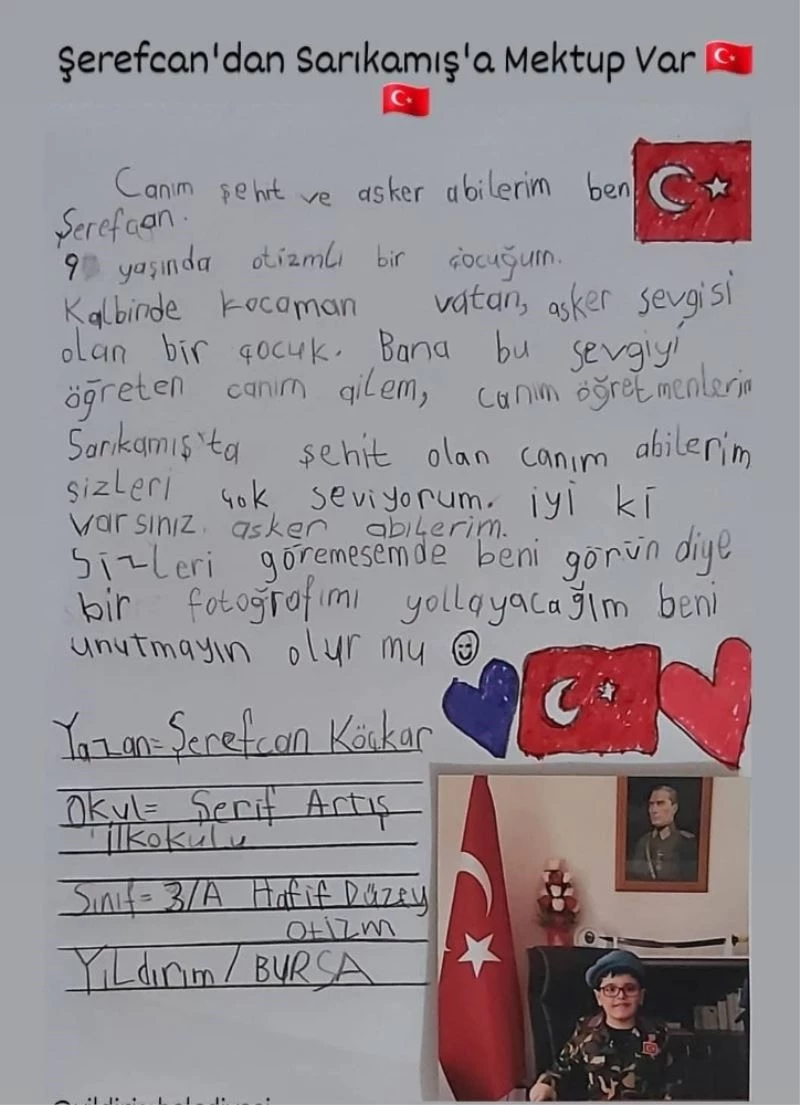 Şerefcan'dan Sarıkamış'a Mektup Var 🇹🇷
🇹🇷
Canım şehit ve asker abilerim ben
Şerefcan.
9 yaşında otizmli bir çocuğum.
Kalbinde kocaman vatan, asker sevgisi
olan bir çocuk. Bana bu sevgiyi
öğreten canım ailem, canım öğretmenlerim
Sarıkamış'ta şehit olan canım abilerim
sizleri çok seviyorum. iyi ki
varsınız. asker abilerim.
Sizleri göremesemde beni görün diye
bir fotoğrafımı yollayacağım beni
unutmayın olur mu ☺
Yazan= Şerefcan Köçkar
Okul= Şerif Artış
ilkokulu
Sınıf= 3/A Hafif Düzey
otizm
Yıldırım / BURSA